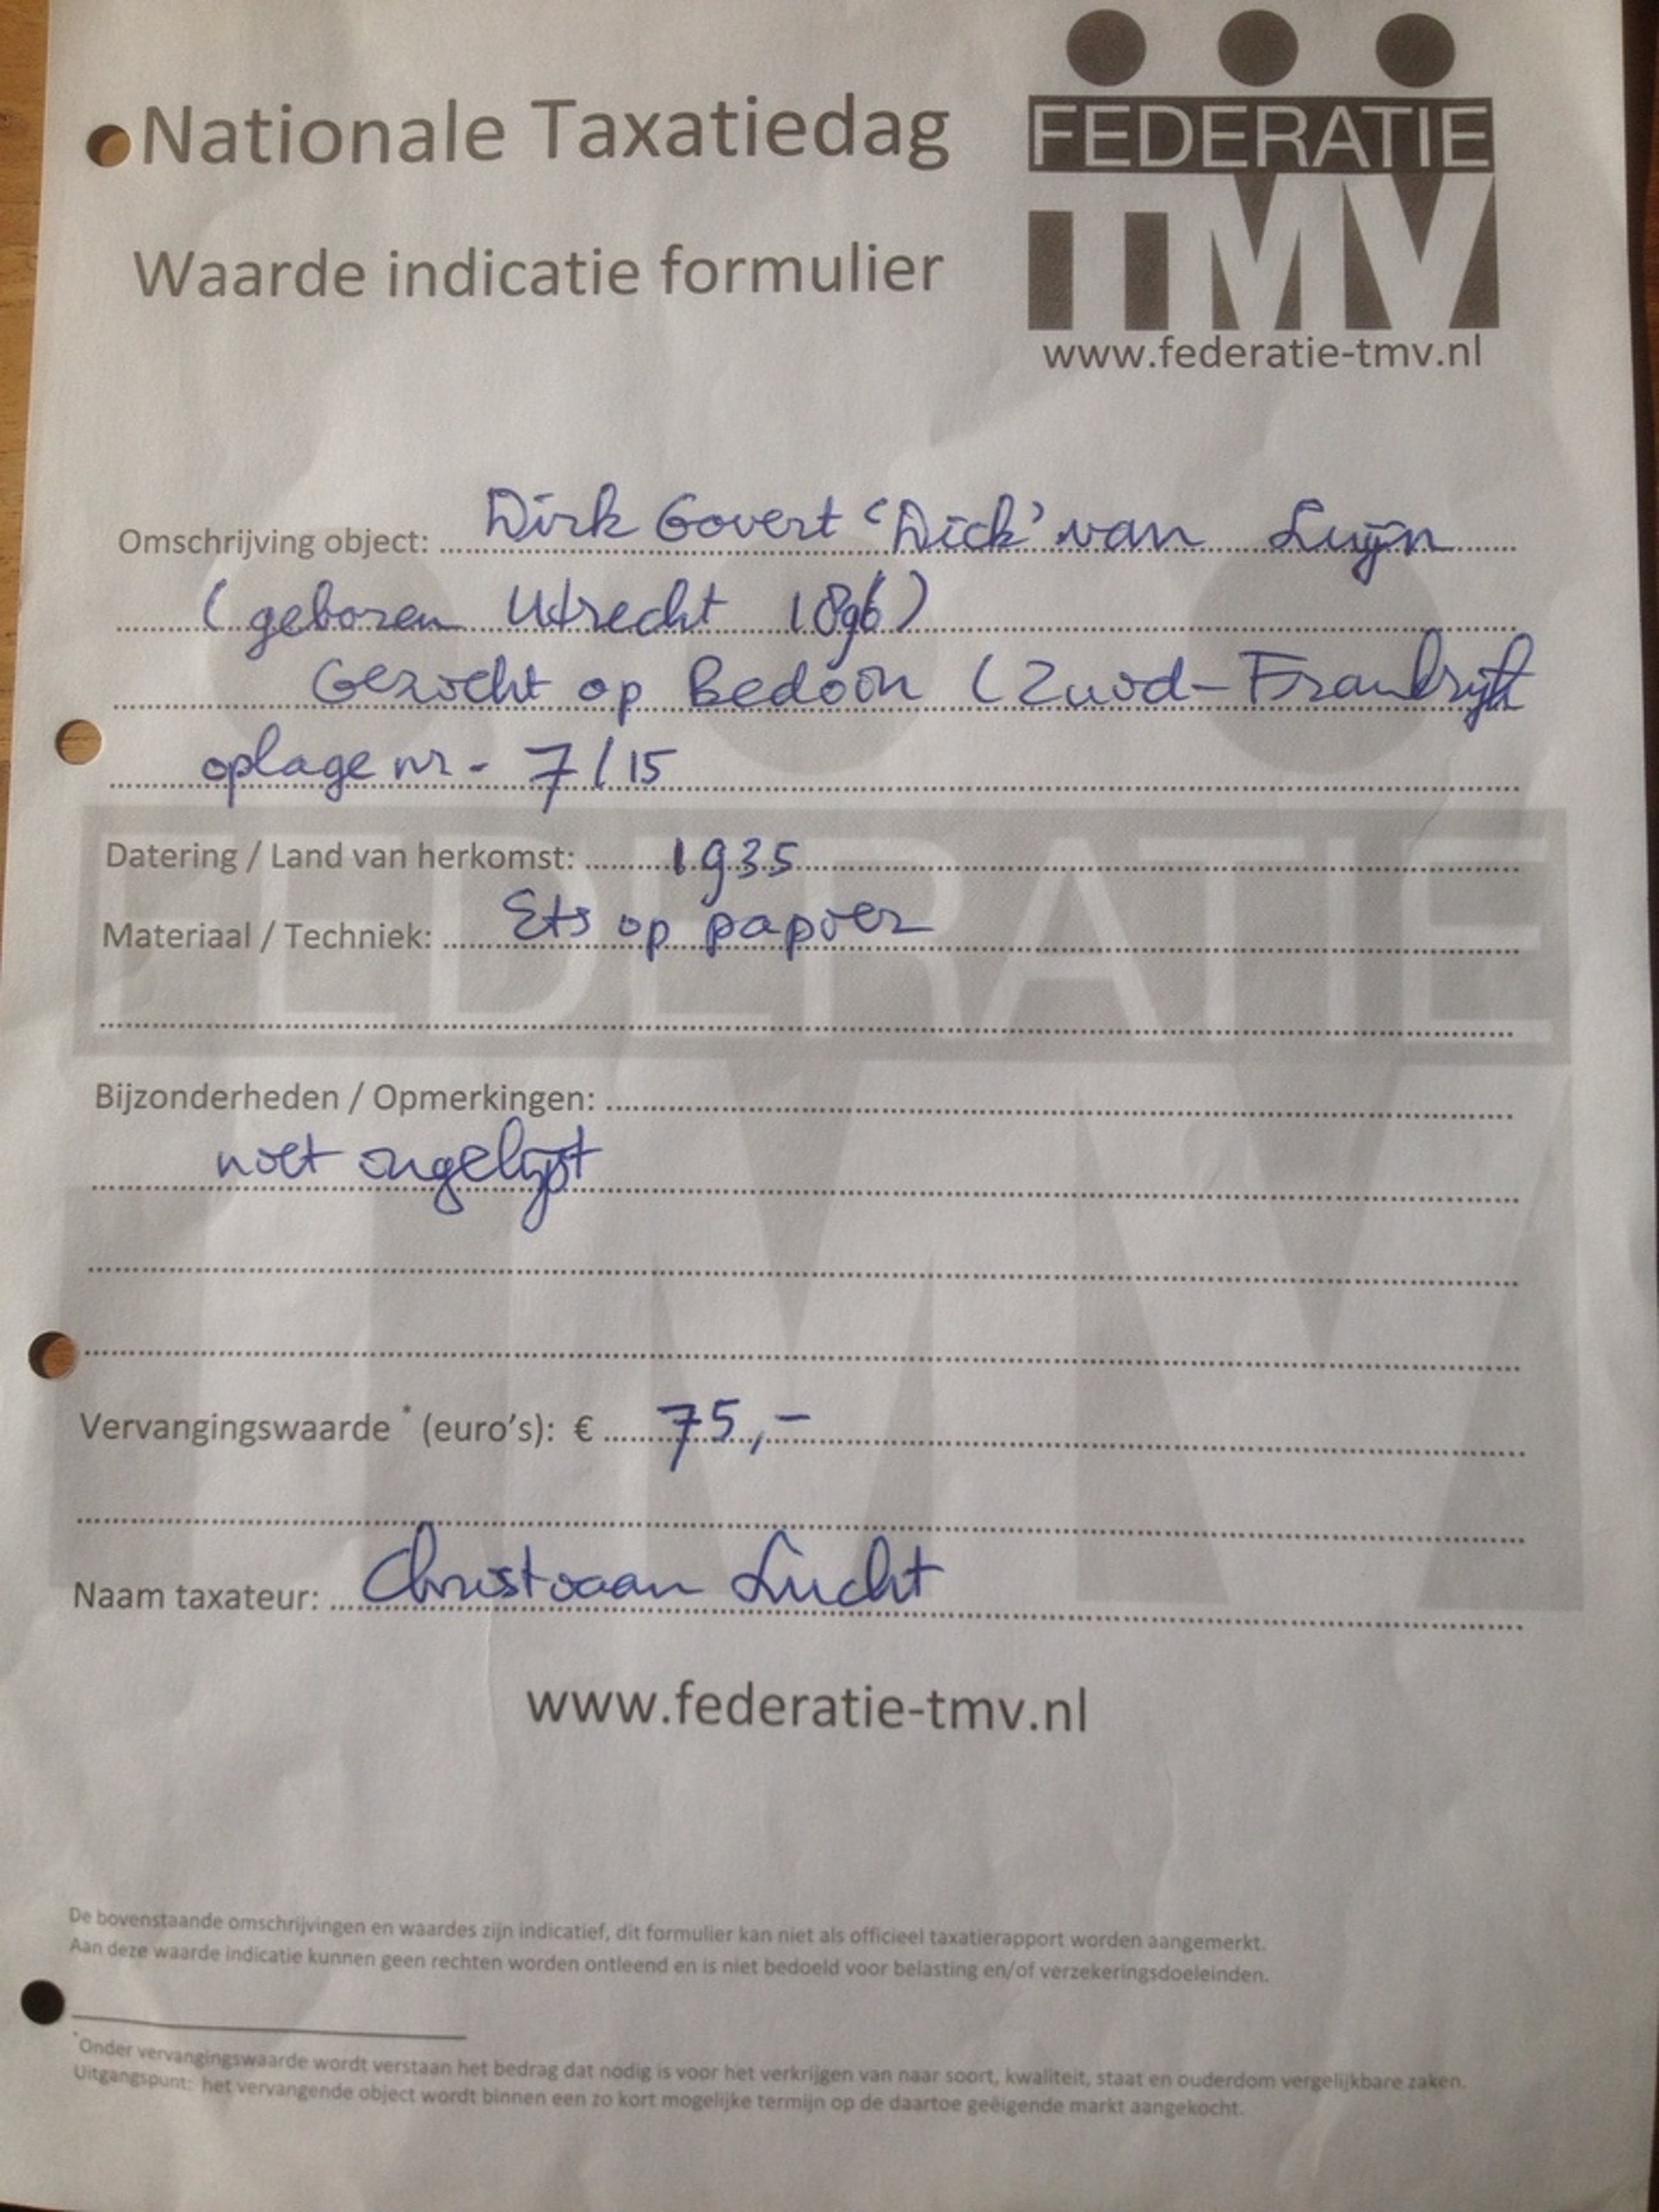 Nationale Taxatiedag
Waarde indicatie formulier
FEDERATIE
TMV
www.federatie-tmv.nl
Omschrijving object: Dirk Govert 'Dick' van Luijn
(geboren Utrecht 1896)
Gezicht op Bedoin (Zuid-Frankrijk
oplage nr - 7/15
Datering / Land van herkomst: 1935
Materiaal / Techniek: Ets op papier
Bijzonderheden / Opmerkingen:
niet ingelijst
Vervangingswaarde * (euro's): € 75,-
Naam taxateur: Christiaan Lucht
www.federatie-tmv.nl
De bovenstaande omschrijvingen en waardes zijn indicatief, dit formulier kan niet als officieel taxatierapport worden aangemerkt.
Aan deze waarde indicatie kunnen geen rechten worden ontleend en is niet bedoeld voor belasting en/of verzekeringsdoeleinden.
*Onder vervangingswaarde wordt verstaan het bedrag dat nodig is voor het verkrijgen van naar soort, kwaliteit, staat en ouderdom vergelijkbare zaken.
Uitgangspunt: het vervangende object wordt binnen een zo kort mogelijke termijn op de daartoe geëigende markt aangekocht.
FEDERATIE
TMV